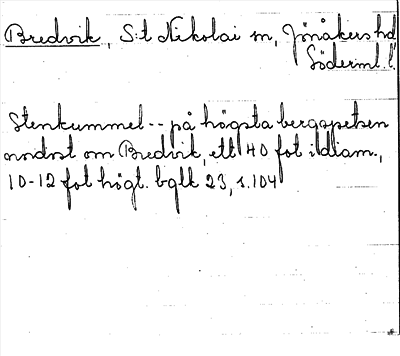 Bredvik, S:t Nikolai sn, Jönåkers hd
Söderml. l.
Stenkummel -- på högsta bergspetsen
nordost om Bredvik, ett 40 fot i diam.,
10-12 fot högt. bglk 23, s. 104